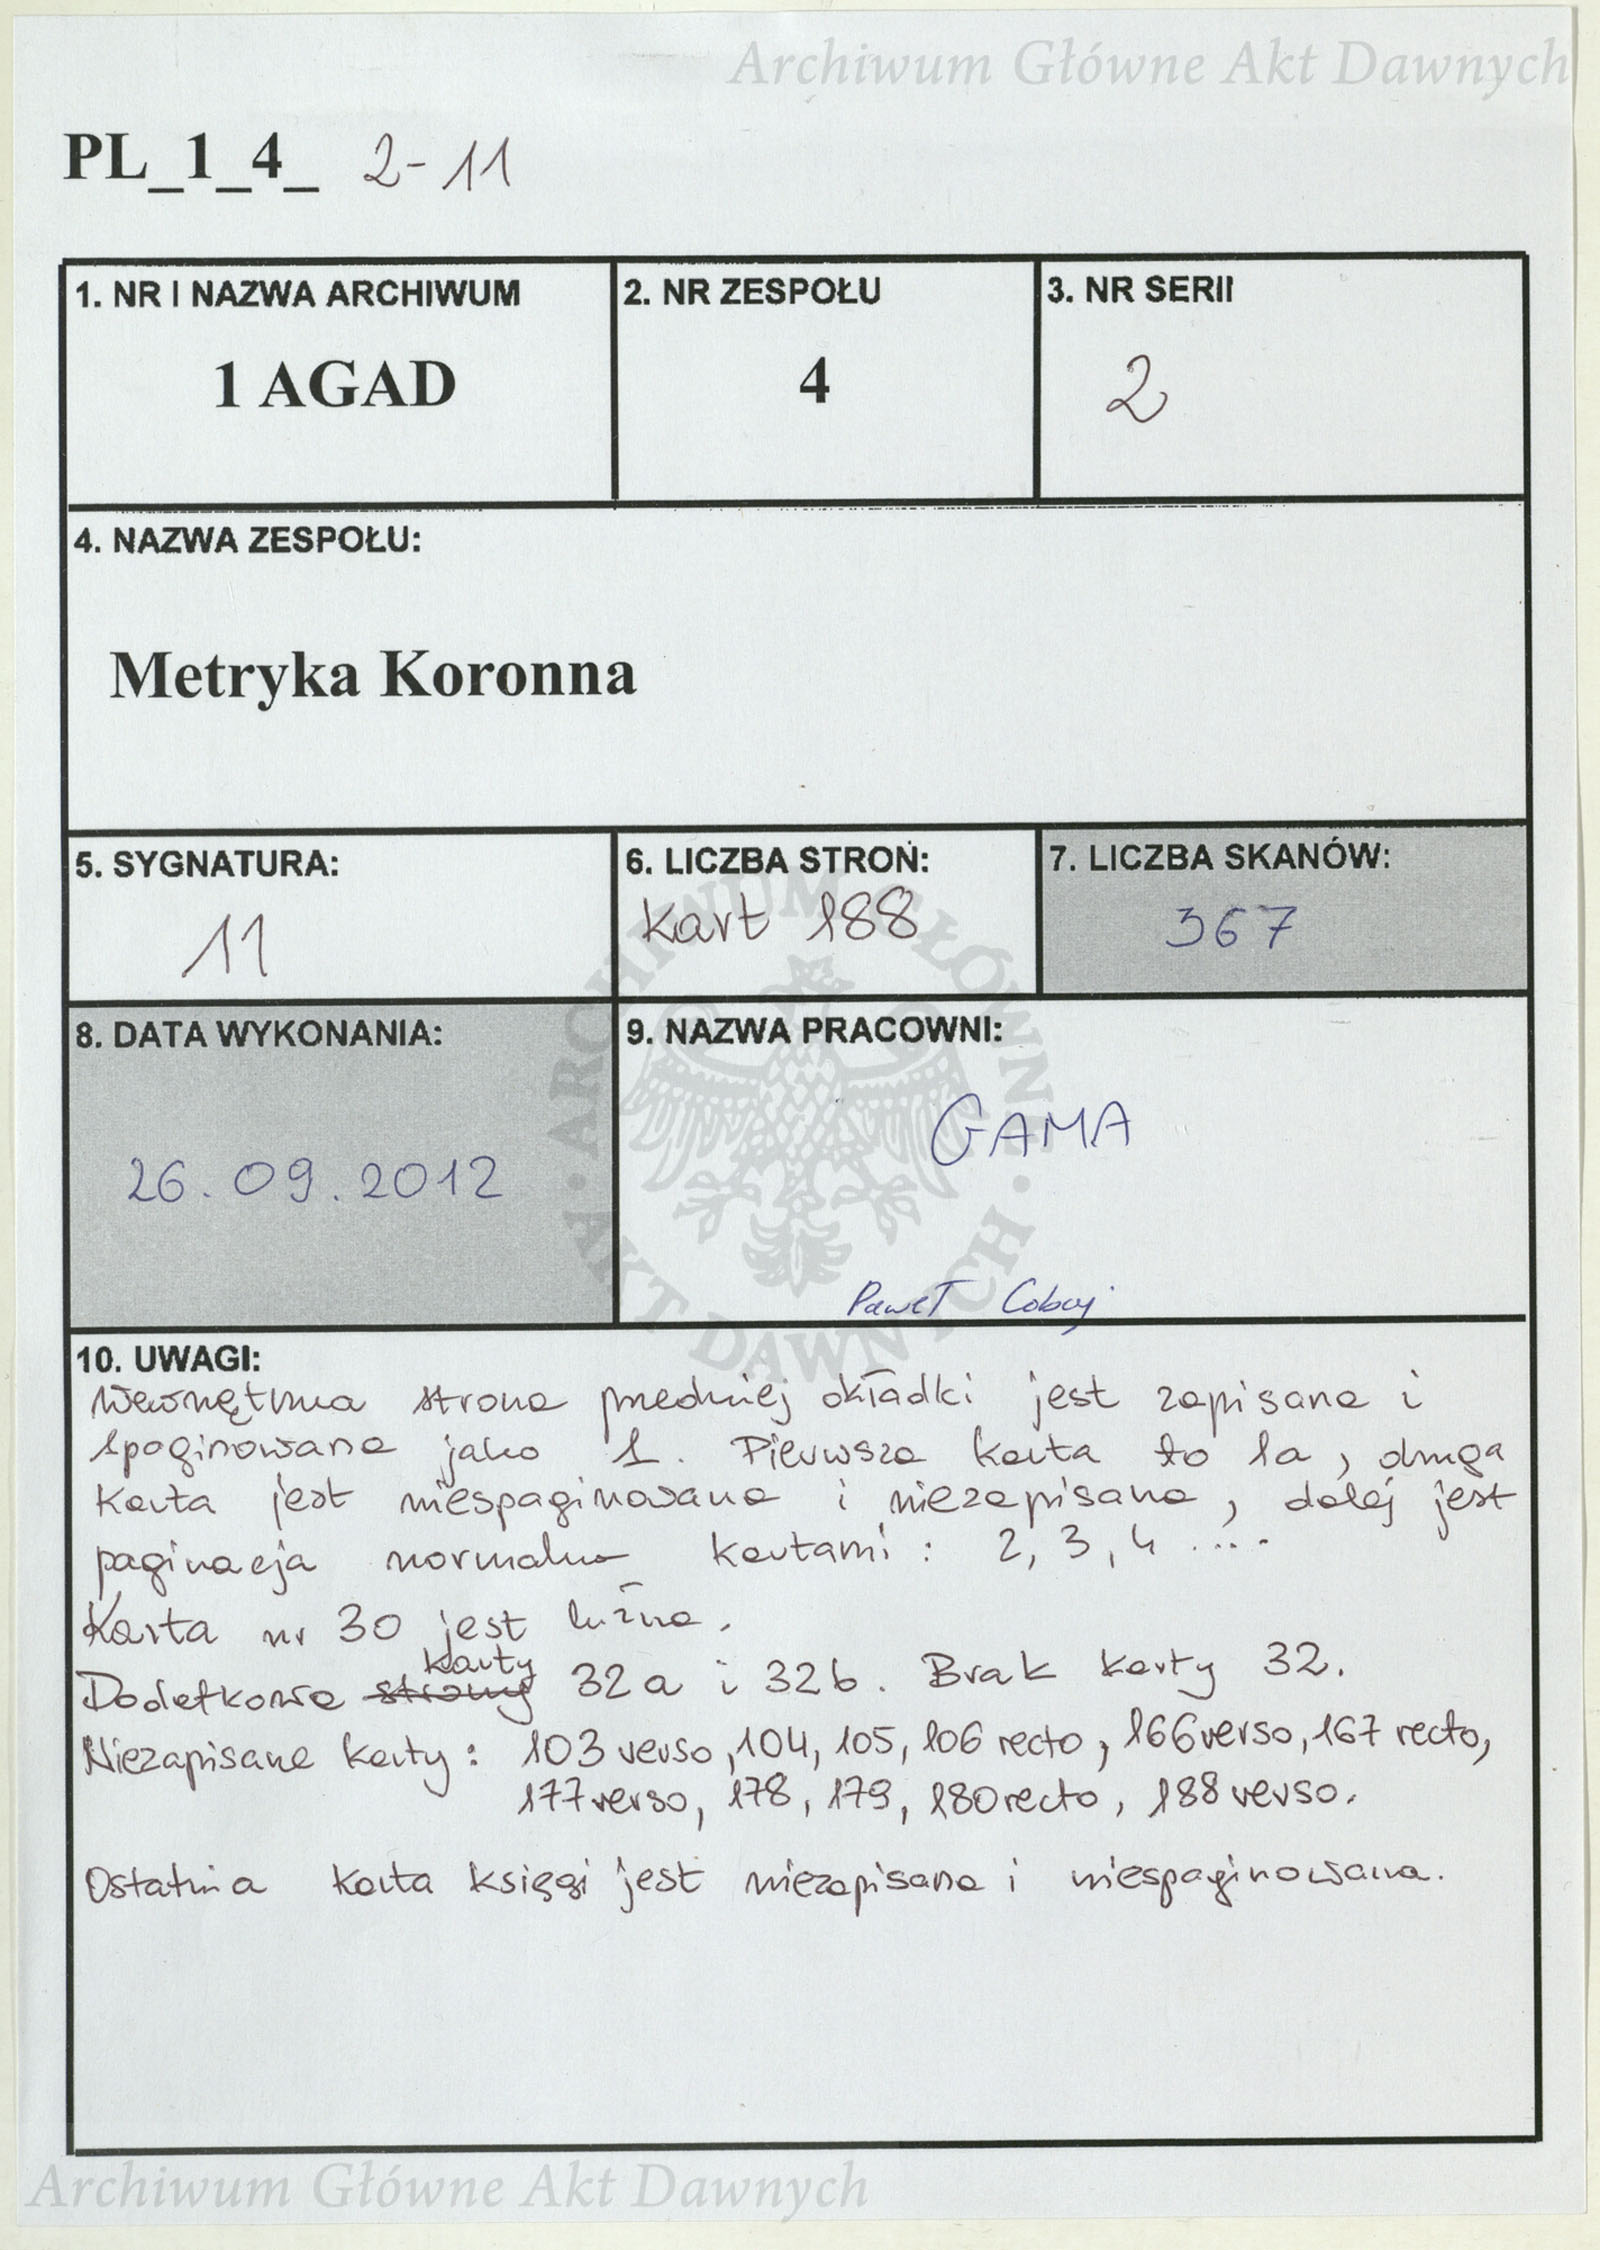 Archiwum Główne Akt Dawnych
PL_1_4_ 2-11
1. NR I NAZWA ARCHIWUM
1 AGAD
2. NR ZESPOŁU
4
3. NR SERII
2
4. NAZWA ZESPOŁU:
Metryka Koronna
5. SYGNATURA:
11
6. LICZBA STRON:
kart 188
7. LICZBA SKANÓW:
367
8. DATA WYKONANIA:
26.09.2012
9. NAZWA PRACOWNI:
GAMA
Paweł
ARCHIWUM GŁÓWNE AKT DAWNYCH
10. UWAGI:
Wewnętrzna strona przedniej okładki jest zapisana i
spaginowana jako 1. Pierwsza karta to 1a, druga
karta jest niespaginowana i niezapisana, dalej jest
paginacja normalna kartami: 2, 3, 4 ....
Karta nr 30 jest luźna.
karty
Dodatkowe strony 32a i 32b. Brak karty 32.
Niezapisane karty: 103 verso, 104, 105, 106 recto, 166 verso, 167 recto,
177 verso, 178, 179, 180 recto, 188 verso.
Ostatnia karta księgi jest niezapisana i niespaginowana.
Archiwum Główne Akt Dawnych